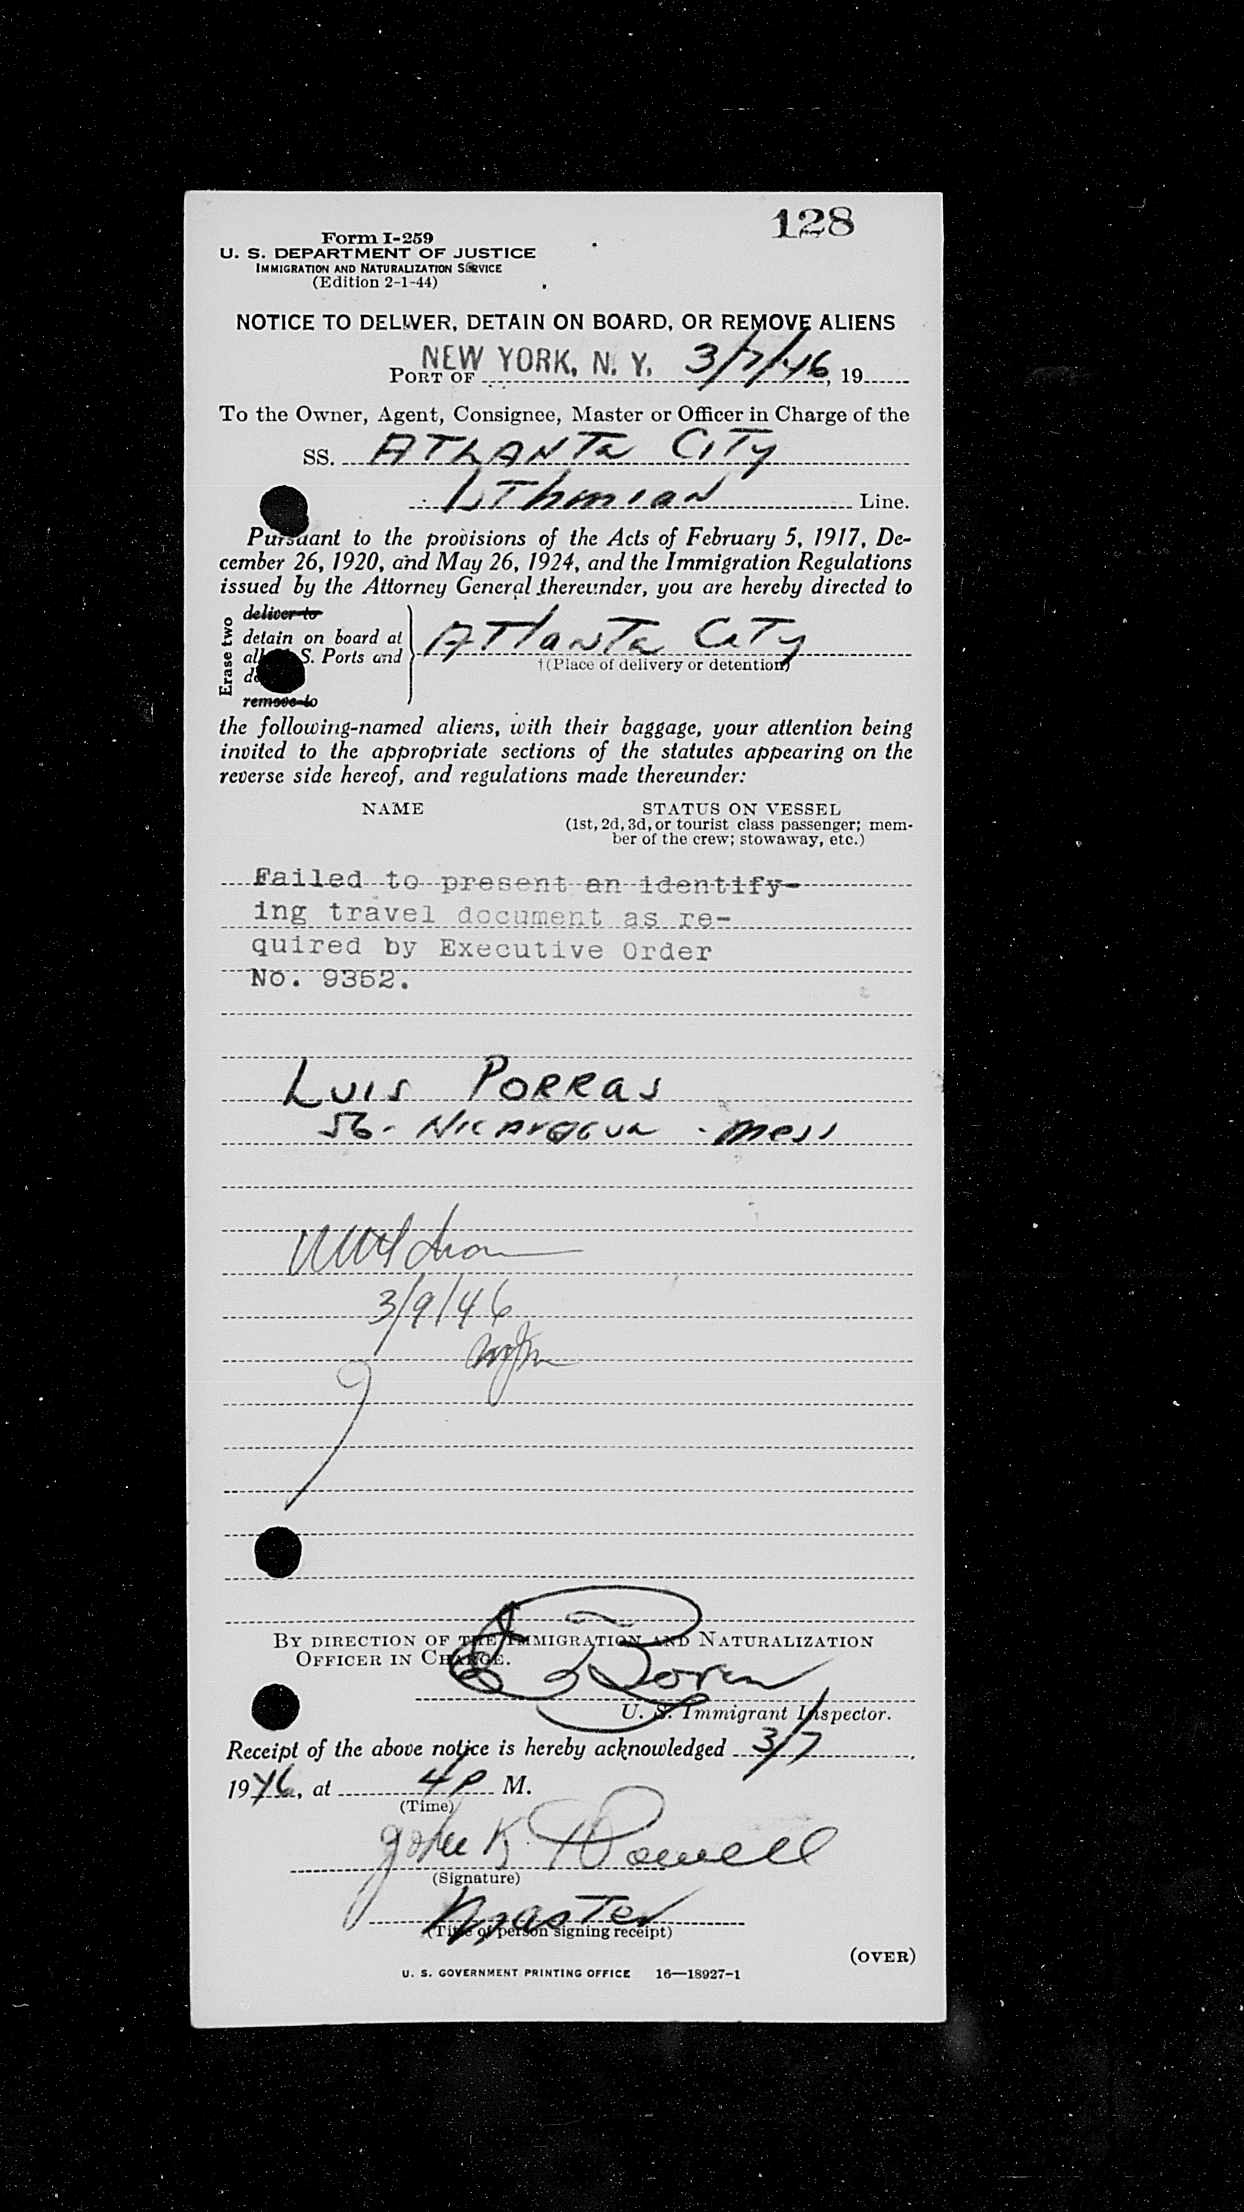 128
Form I-259
U. S. DEPARTMENT OF JUSTICE
IMMIGRATION AND NATURALIZATION SERVICE
(Edition 2-1-44)
NOTICE TO DELIVER, DETAIN ON BOARD, OR REMOVE ALIENS
PORT OF NEW YORK, N. Y. 3/7/46, 19
To the Owner, Agent, Consignee, Master or Officer in Charge of the
SS. ATLANTA CITY
Line.
Pursuant to the provisions of the Acts of February 5, 1917, De-
cember 26, 1920, and May 26, 1924, and the Immigration Regulations
issued by the Attorney General thereunder, you are hereby directed to
Erase two
deliver to
detain on board at
all S. Ports and
remove to
ATLanTa CiTy
†(Place of delivery or detention)
the following-named aliens, with their baggage, your attention being
invited to the appropriate sections of the statutes appearing on the
reverse side hereof, and regulations made thereunder:
NAME
STATUS ON VESSEL
(1st, 2d, 3d, or tourist class passenger; mem-
ber of the crew; stowaway, etc.)
Failed to present an identify-
ing travel document as re-
quired by Executive Order
No. 9352.
LUIS PORRAS
56 - NICARAGUA - mess
3/9/46
BY DIRECTION OF THE IMMIGRATION AND NATURALIZATION
OFFICER IN CHARGE.
U. S. Immigrant Inspector.
Receipt of the above notice is hereby acknowledged 3/7,
1946, at 4 P M.
(Time)
John K.
(Signature)
master
(Title of person signing receipt)
(OVER)
U. S. GOVERNMENT PRINTING OFFICE 16—18927-1